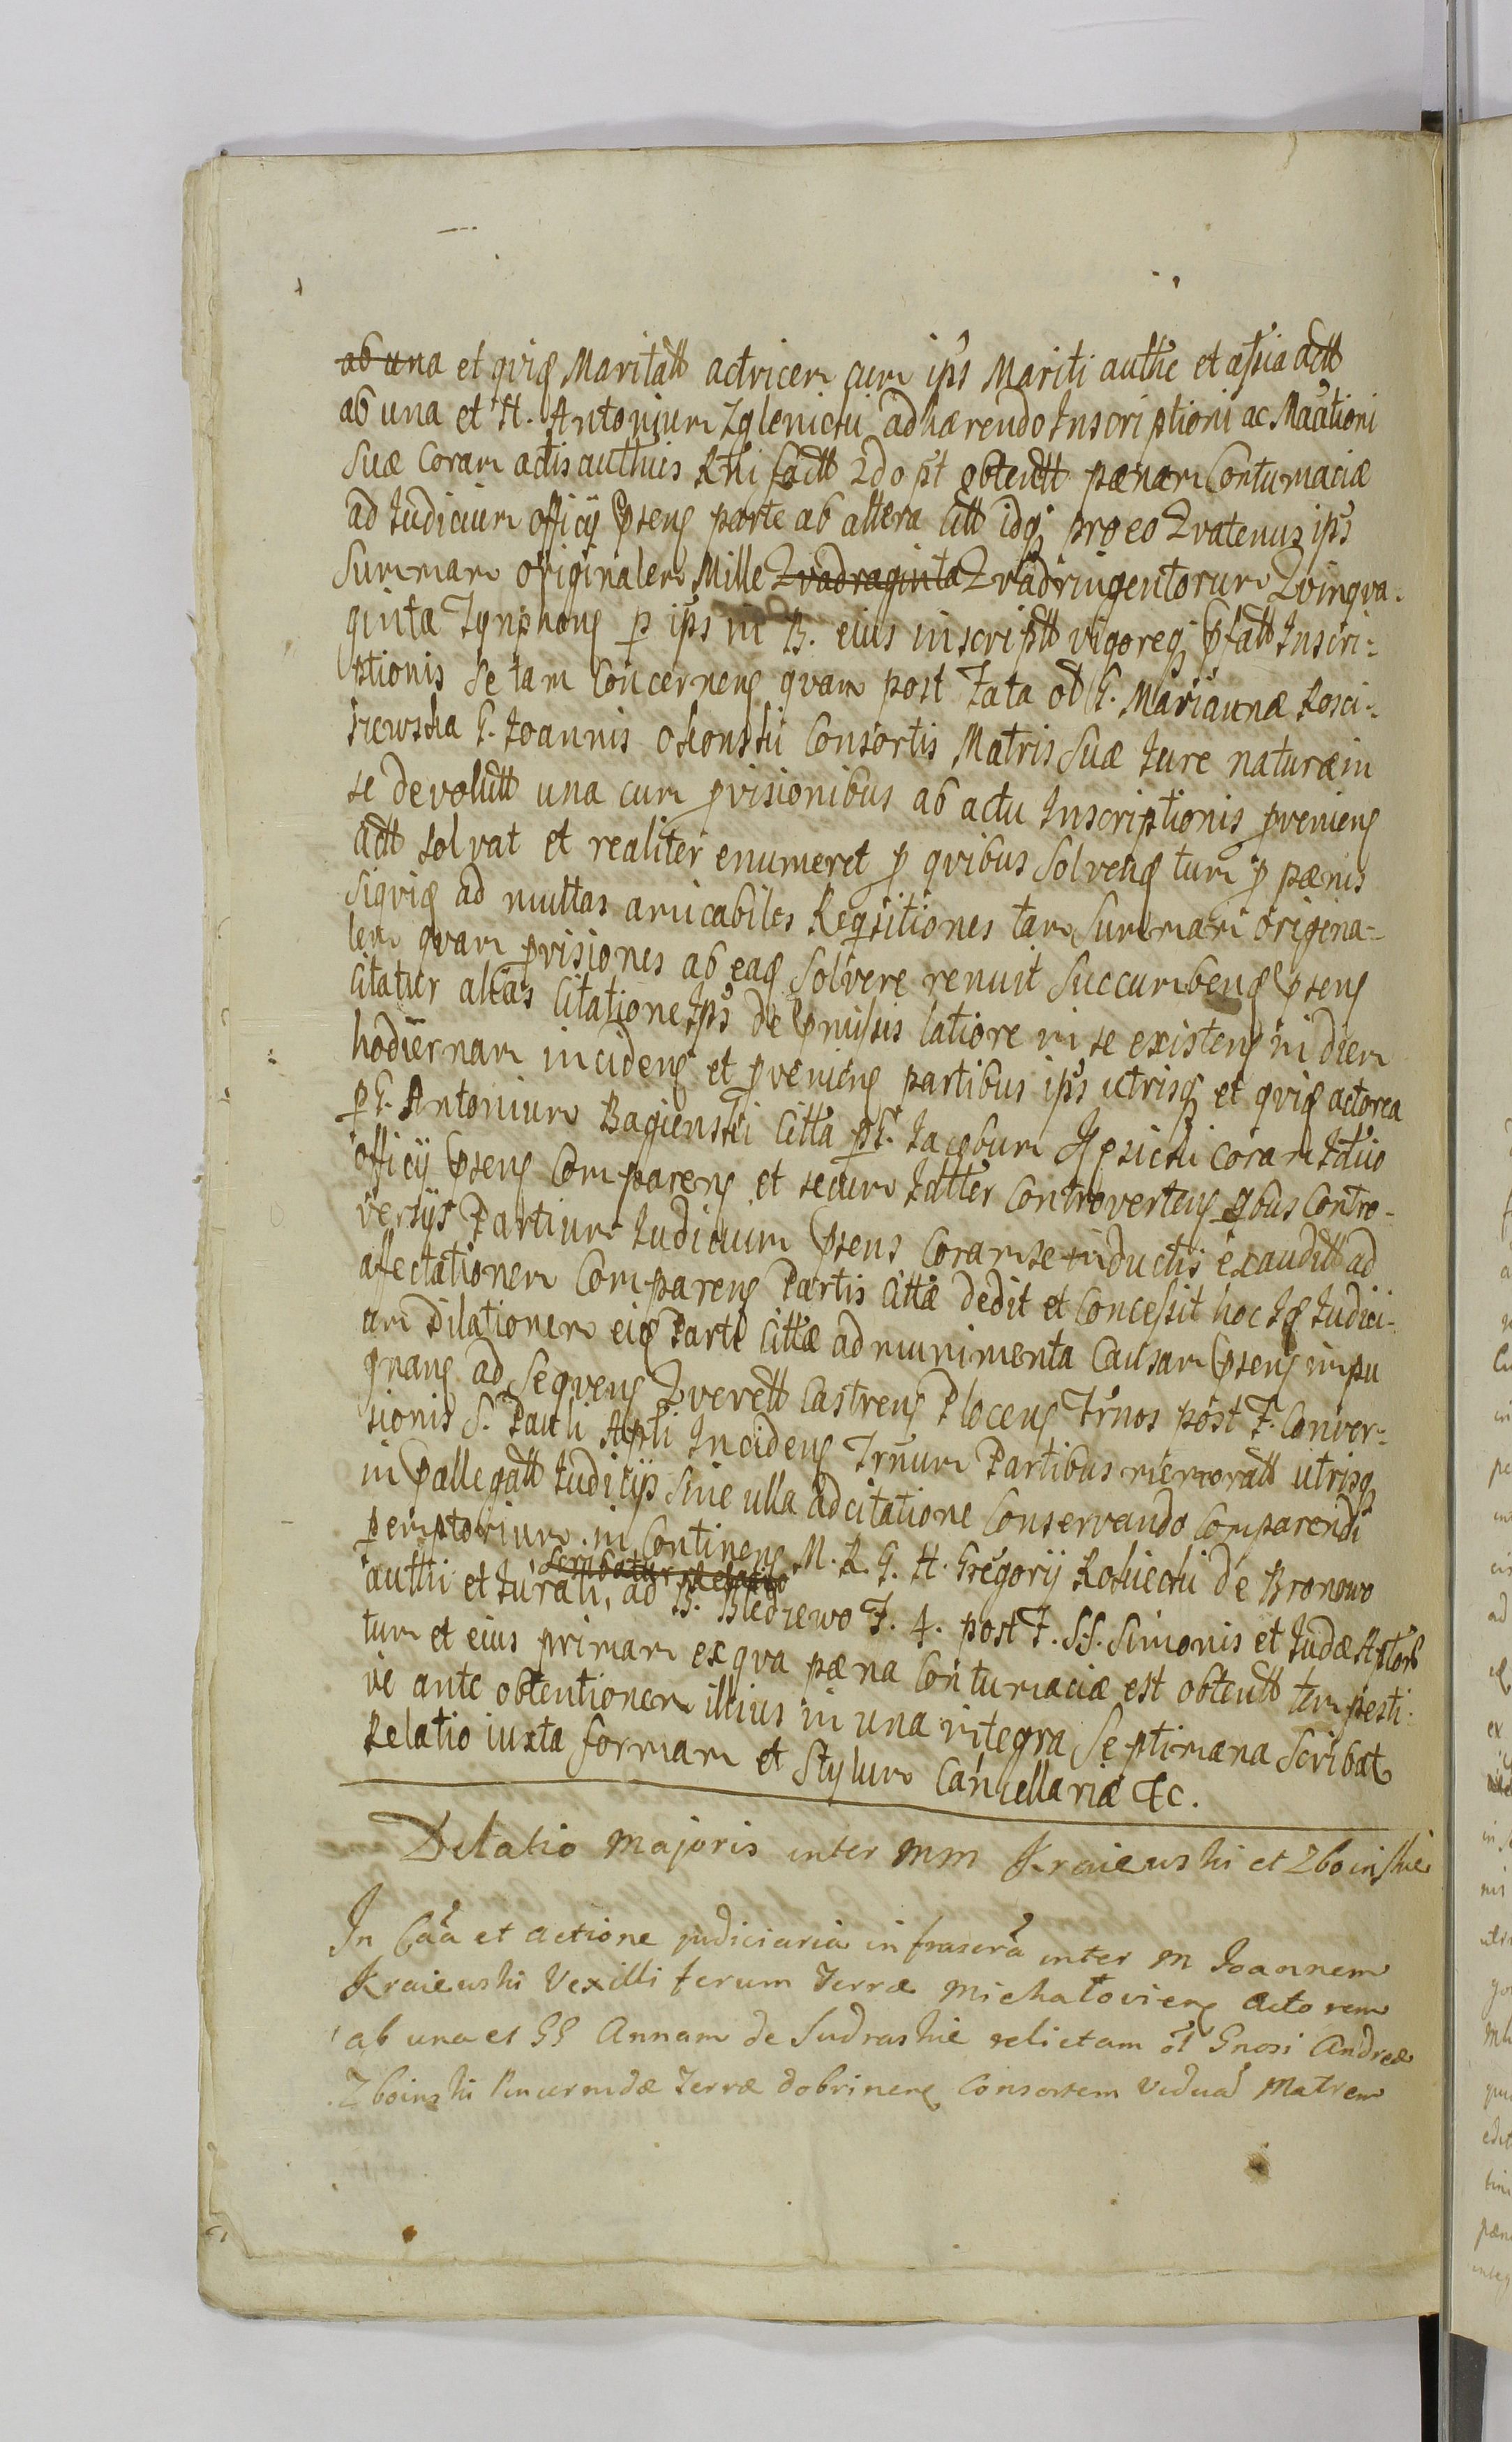 ab una et qviq Maritatt actricem cum ips Mariti authe et assia actt
ab una et H. Antonium Zglenicki adhærendo Inscriptioni ac Maationi
Suæ Coram actis authuis Rthi factt 2do pt obtentt pænam Contumaciæ
ad Judicium officij pseng parte ab altera Citt idq pro eo Qvatenus ips
Summam originalem Mille Qvadraginta Qvadringentorum Qvinqva-
ginta Tynphong p ips in B. eius inscriptt vigoreq pfatt Inscri-
ptionis Se tam Concerneng qvam post Fata ol G. Mariannæ Rosci-
szewska G. Joannis Okonski Consortis Matris Suæ Jure naturæ in
se devolutt una cum pvisionibus ab actu Inscriptionis pvenieng
actt solvat et realiter enumeret p qvibus Solvenq tum p pænis
Siqviq ad multas amicabiles Reqsitiones tam Summam origina-
lem qvam pvisiones ab eaq Solvere renuit Succumbenq pseng
Citatur alias Citatione Ips de pmissis latiore in se existeng in diem
hodiernam incideng et pvenieng partibus ips utrisq et qviq actorea
p G. Antonium Bagienski Citta p G. Jacobum coram Jttuo
officij pseng Compareng et secum Jttter Controverteng qbus Contro-
versijs Partium Judicium psens Coram se inductis exauditt ad
affectationem Compareng Partis Cittæ dedit et Concessit hoc Jq Judici-
um Dilationem eiq Parte Cittæ ad munimenta Causam pseng impu
gnang ad Seqveng Qverett Castreng Ploceng Trnos post F. Conver-
sionis S. Pauli Apli Incideng Trnum Partibus memoratt utrisq
in pallegatt Judicijs Sine ulla adcitatione Conservando Comparendi
peremptorium in Contineng M. R. G. H. Gregorij Rokicki de Bronowo
Scribatur Relatio
authi et Jurati, ad B. Bledzewo F. 4. post F. S.S. Simonis et Judæ Aplorl
tum et eius primam ex qva pæna Contumaciæ est obtentt tempesti-
ve ante obtentionem illius in una integra Septimana Scribat
Relatio iuxta formam et Stylum Cancellariæ &c.
Dilatio Majoris inter MM Kraiewski et Zboinskie
In Caa et actione judiciaria infrascra inter M Joannem
Kraiewski Vexilliferum Terræ Michaloviens actorem
ab una et GG Annam de Sudraskie relictam ol Gnosi Andreæ
Zboinski Pincernidæ Terræ dobrinens Consortem Viduam Matrem